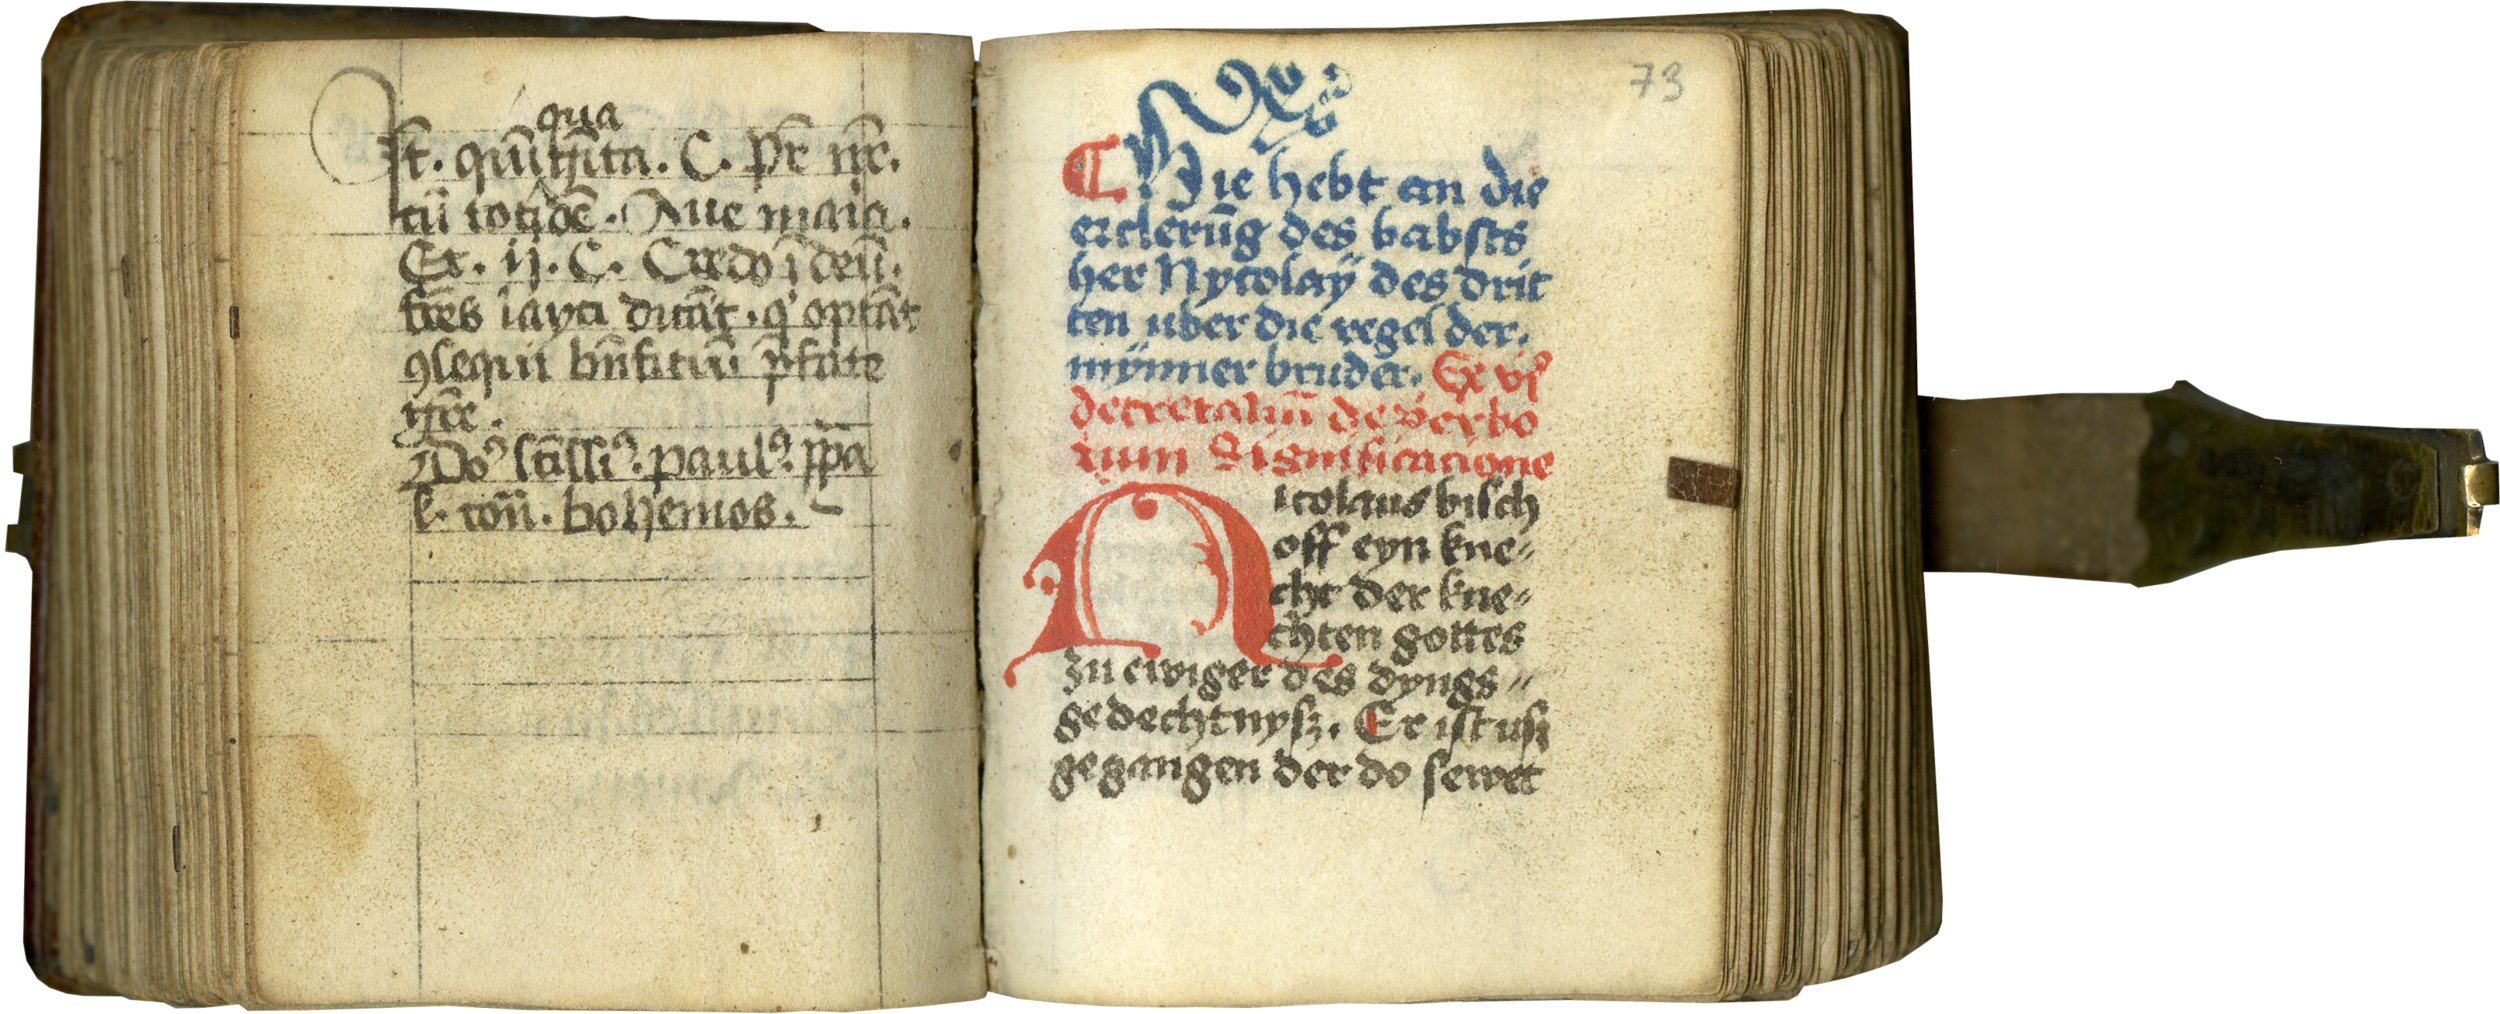 qua
St. quī͂ta. C. pr̄ nr̄.
cū totidē. Aue maria.
Ex. ij. C. Credo ī deū.
fr̄es layci dicāt. q̄ optāt
ꝯsequi bn̄ficiū. p̄fate
Do⁹ sc̄issi⁹. paul⁹. pp̄a
bohemos.
73
Hie hebt an die
erclerūg des babsts
her Nycolaÿ des drit
ten uber die regel der.
mÿnner bruder. Ex vjͦ
decretaliū de verbo
rum Significacione
Nicolaus bisch
off eyn kne⸗
cht der kne⸗
chten gottes
zu ewiger des dyngs⸗
gedechtnysz. Er ist usz
gegangen der do sewet